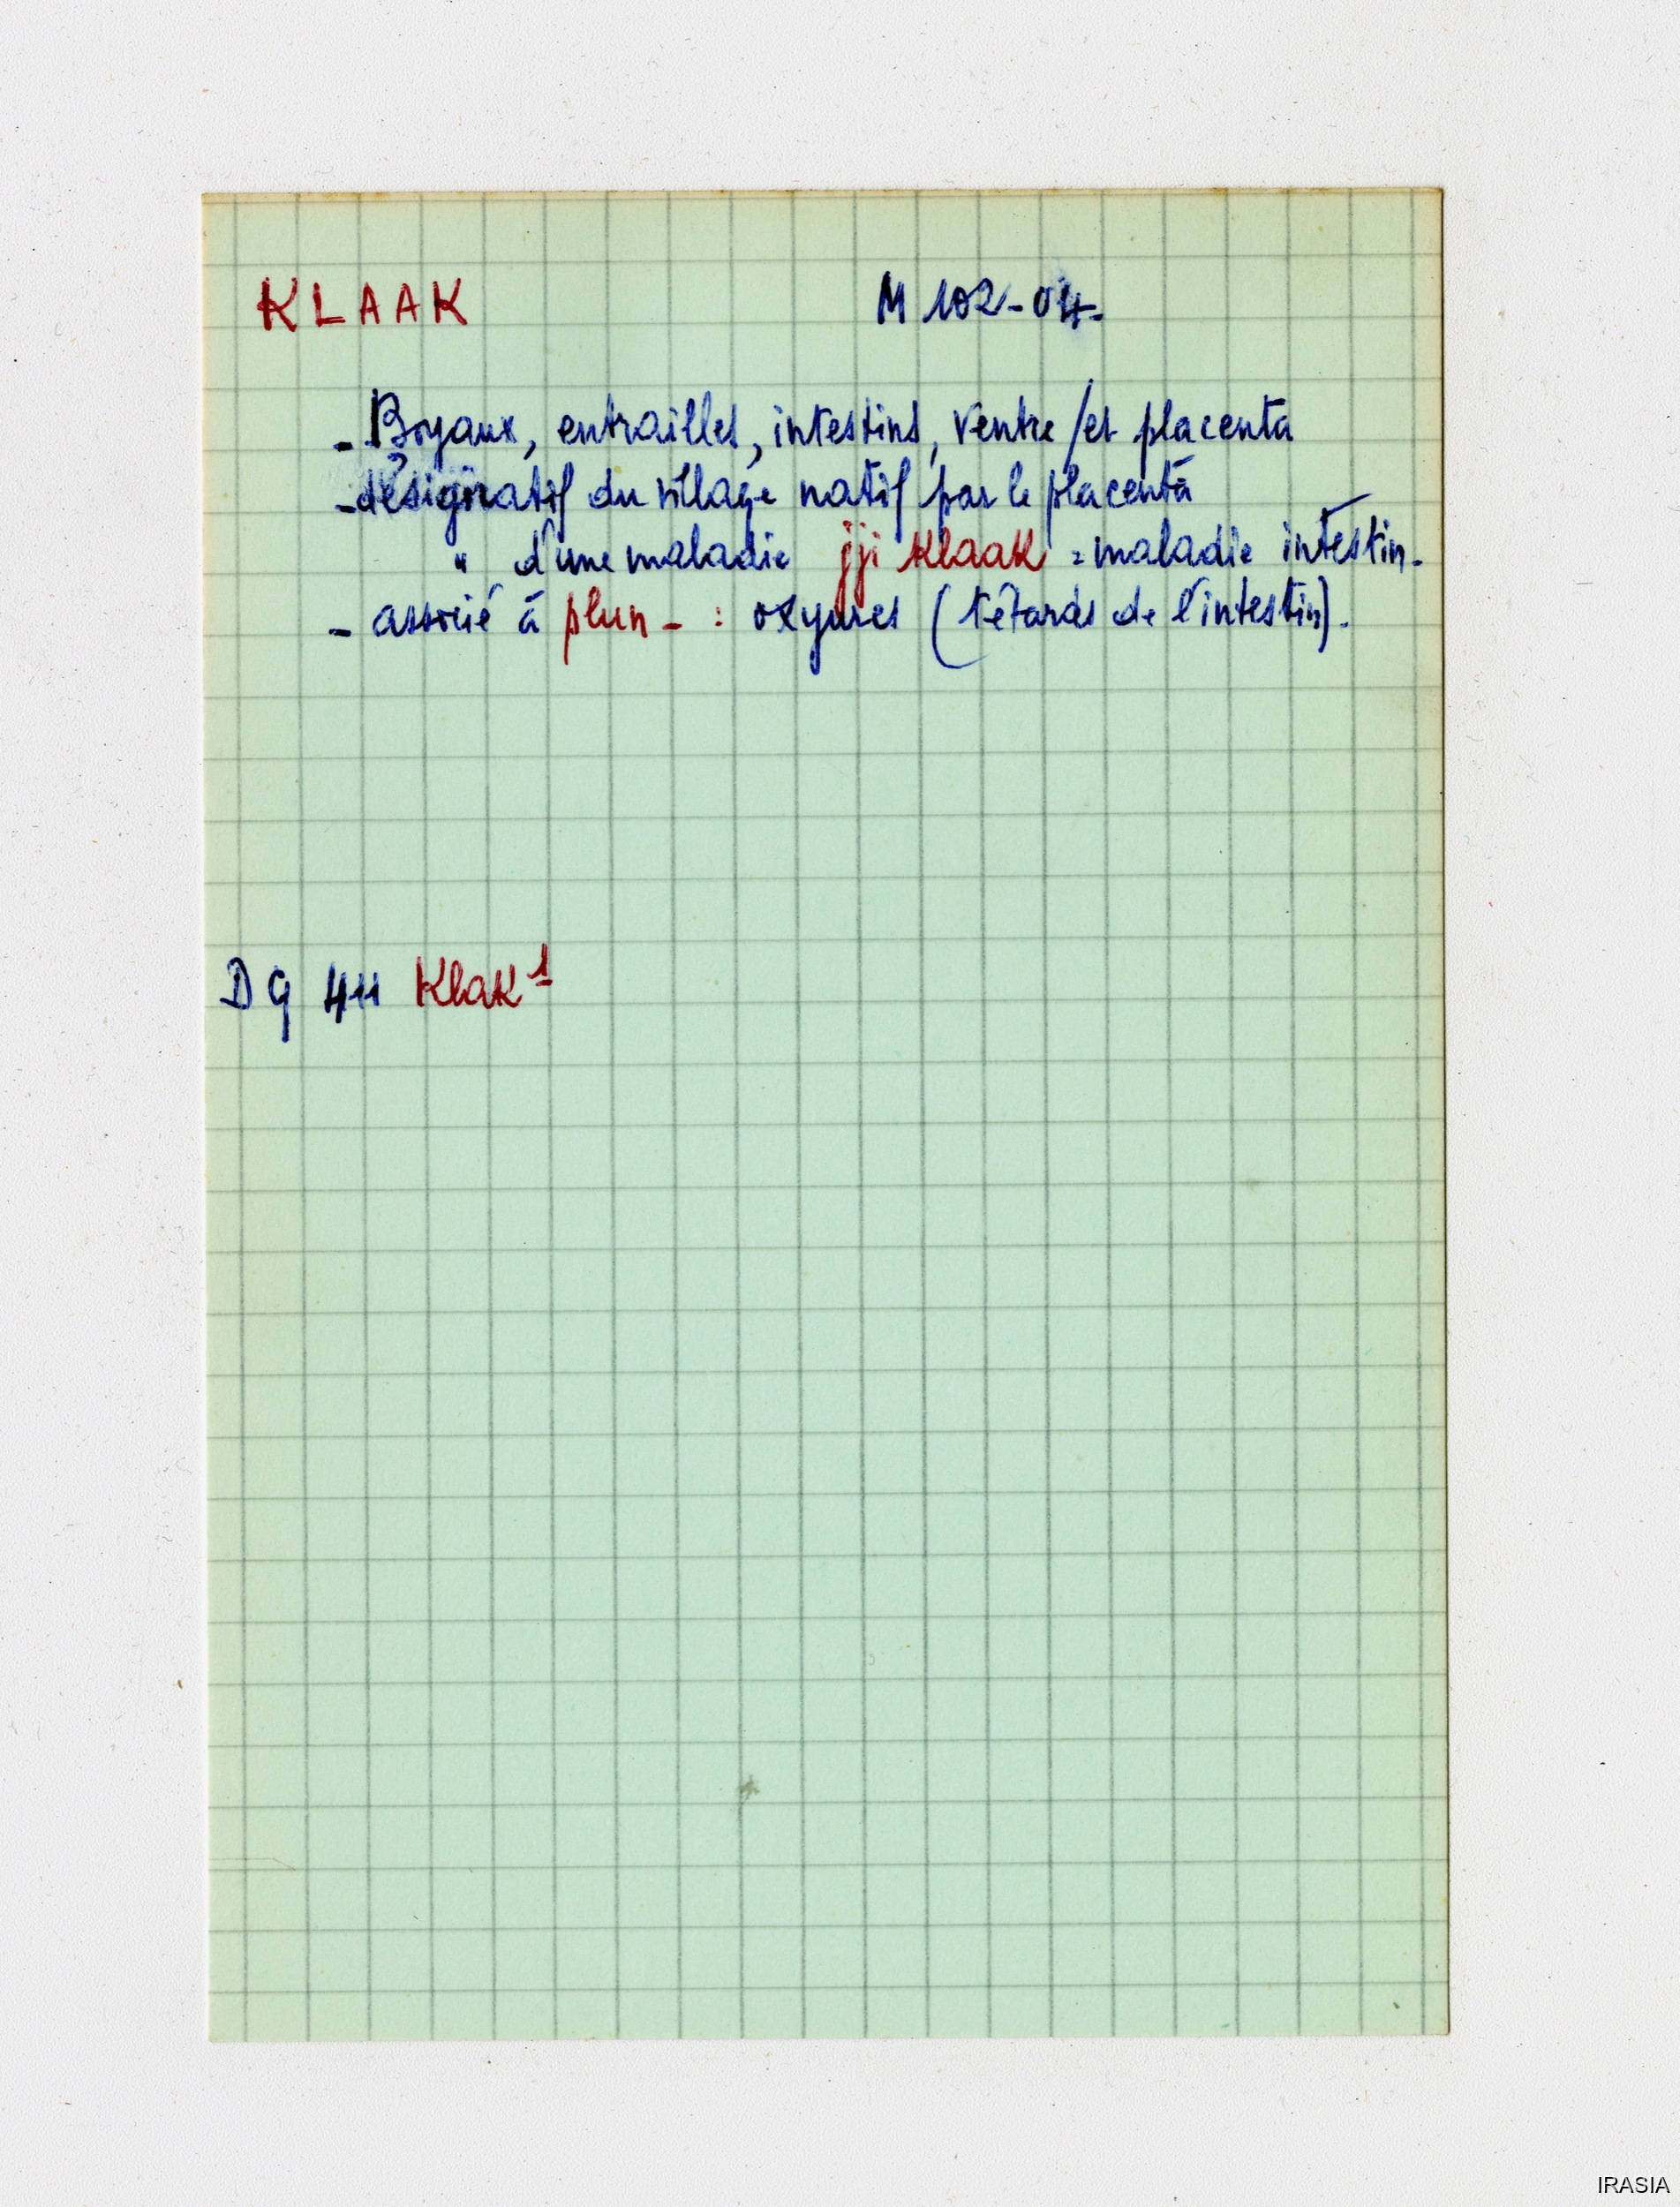 KLAAK M 102-04-
- Boyaux, entrailles, intestins, ventre /et placenta
- désignatif du village natif par le placenta
" d'une maladie jji klaak = maladie intestin.
- associé à plun - : oxyures (têtards de l'intestin).
DG 411 Klak 1
IRASIA